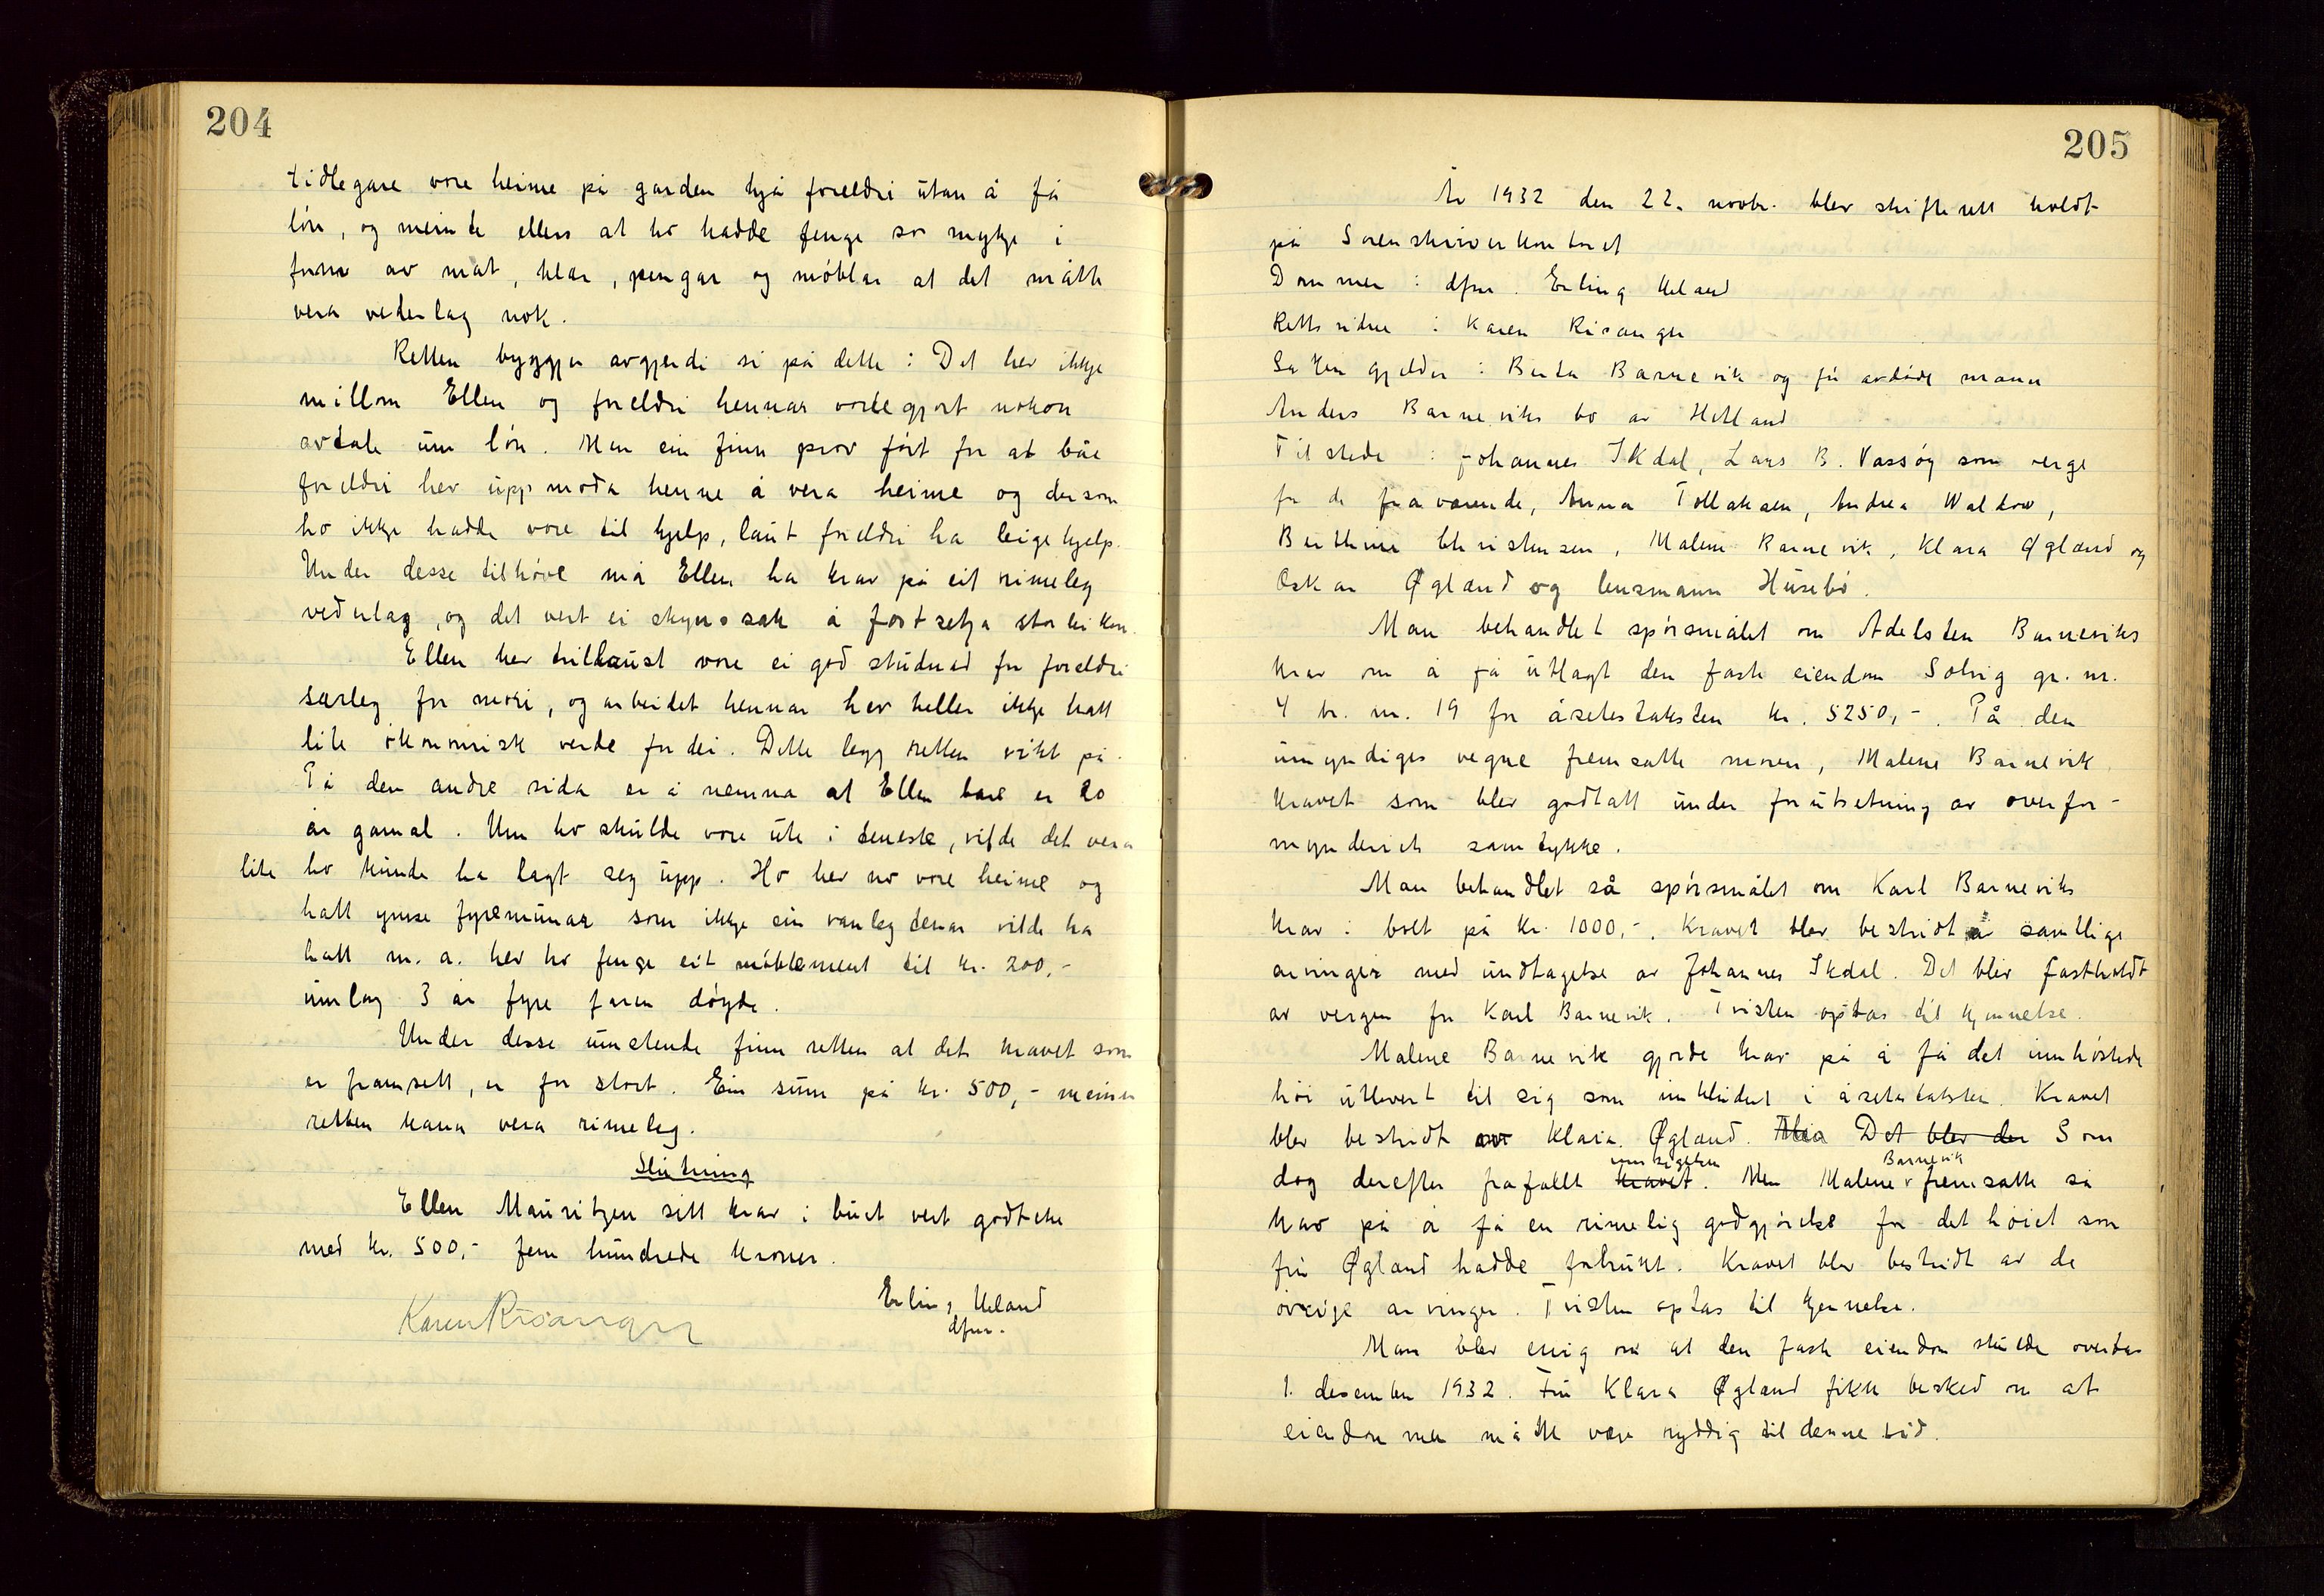 204
tidlegare vore heime på garden hjå foreldri utan å få
løn, og meinte ellers at ho hadde fenge so mykje i
form av mat, klær, pengar og møblar at det måtte
vera vederlag nok.
Retten byggjer avgjerdi si på dette: Det hev ikkje
millom Ellen og foreldri hennar vorte gjort nokon
avtale um løn. Men ein finn prov ført for at båe
foreldri hev uppmoda henne å vera heime og dersom
ho ikkje hadde vore til hjelp, laut foreldri ha leigehjelp.
Under desse tilhøve må Ellen ha krav på eit rimeleg
vederlag, og det vert ei skynssak å fastsetja storleiken.
Ellen hev tvillaust vore ei god studnad for foreldri
særleg for mori, og arbeidet hennar hev heller ikkje hatt
lite økonomisk verde for dei. Dette legg retten vekt på.
På den andre sida er å nemna at Ellen bare er 20
år gamal. Um ho skulde vore ute i teneste, vilde det vera
lite ho kunde ha lagt seg upp. Ho hev no vore heime og
hatt ymse fyremunar som ikkje ein vanleg tenar vilde ha
hatt m. a. hev ho fenge eit møblement til kr. 200,-
umlag 3 år fyre faren døyde.
Under desse umstende finn retten at det kravet som
er framsett, er for stort. Ein sum på kr. 500,- meiner
retten kann vera rimeleg.
Slutning
Ellen Mauritzen sitt krav i buet vert godteke
med kr. 500,- fem hundrede kroner.
Erling Ueland
dfm.
Karen Risanger
205
År 1932 den 22. novbr. blev skifterett holdt
på Sorenskriverkontoret
Dommer: dfm. Erling Ueland
Rettsvidne: Karen Risanger
Saken gjelder: Berta Barnevik og før avdøde mann
Anders Barneviks bo av Hetland
Tilstede: Johannes Ikdal, Lars B. Vassøy som verge
for de fraværende, Anna Tollaksen, Andrea Waldow,
Berthine Christensen, Malene Barnevik, Klara Øgland og
Oskar Øgland og lensmann Husebø.
Man behandlet spørsmålet om Adelsten Barneviks
krav om å få utlagt den faste eiendom Solvig gr. nr.
4 br. nr. 19 for åsetestaksten kr. 5250,-. På den
umyndiges vegne fremsatte moren, Malene Barnevik
kravet som blev godtatt under forutsetning av overfor-
mynderiets samtykke.
Man behandlet så spørsmålet om Karl Barneviks
krav i boet på kr. 1000,-. Kravet blev bestridt av samtlige
arvinger med undtagelse av Johannes Ikdal. Det blev fastholdt
av vergen for Karl Barnevik. Tvisten optas til kjennelse.
Malene Barnevik gjorde krav på å få det innhøstede
høi utlevert til sig som innkludert i åsetestaksten. Kravet
blev bestridt av Klara Øgland. Det blev der Som
dog derefter frafallt innsigelsen kravet. Men Malene Barnevik fremsatte så
krav på å få en rimelig godgjørelse for det høiet som
fru Øgland hadde forbrukt. Kravet blev bestridt av de
øvrige arvinger. Tvisten optas til kjennelse.
Man blev enig om at den faste eiendom skulde overtas
1. desember 1932. Fru Klara Øgland fikk besked om at
eiendommen måtte være ryddig til denne tid.